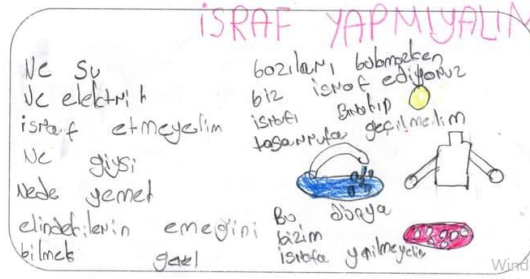 İSRAF YAPMIYALIM
Ne su
Ne elektrik
israf etmeyelim
Ne giysi
Nede yemek
elindekilerin emeğini
bilmek gerek
bozıları bulamazken
biz israf ediyoruz
israfı bırakıp
tasarrufa geçilmelim
Bu dünya
bizim
israfa yenilmeyelim